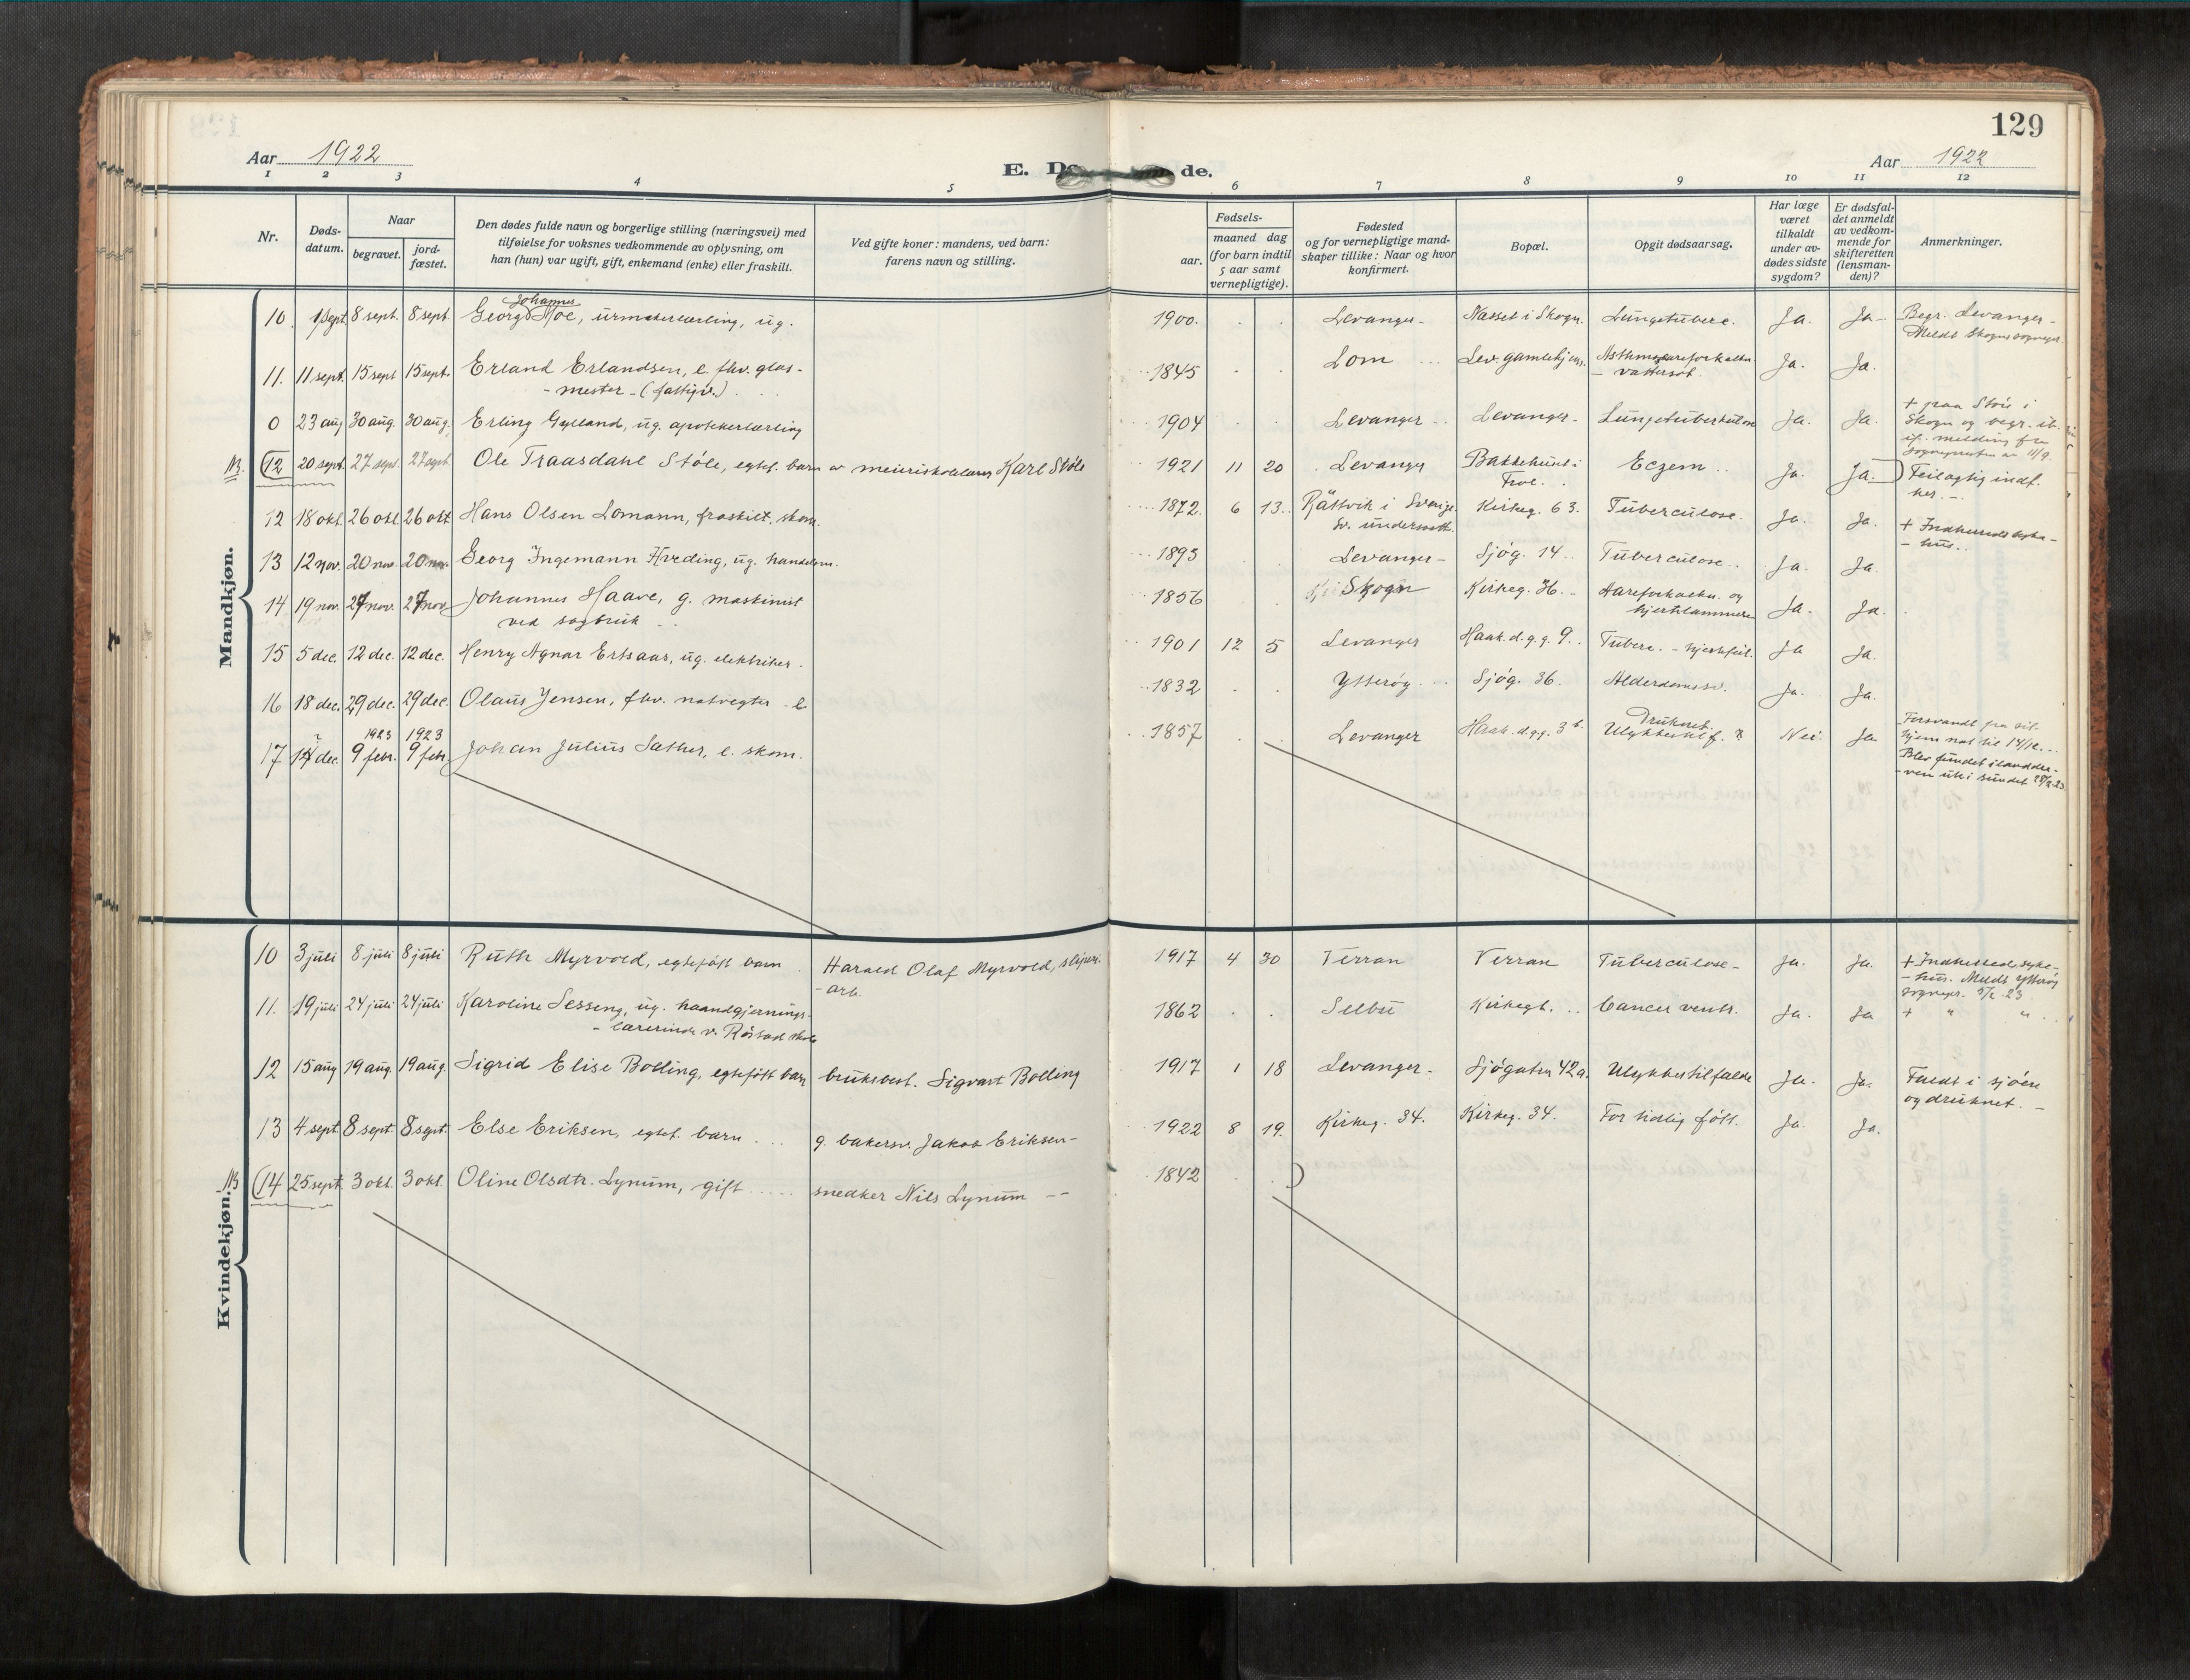 129
Aar 1922
E. De de.
Aar 1922
1 2 3 4 5 6 7 8 9 10 11 12
Nr.
Døds-
datum.
Naar
begravet.
jord-
fæstet.
Den dødes fulde navn og borgerlige stilling (næringsvei) med
tilføielse for voksnes vedkommende av oplysning, om
han (hun) var ugift, gift, enkemand (enke) eller fraskilt.
Ved gifte koner: mandens, ved barn:
farens navn og stilling.
Fødsels-
aar.
maaned dag
(for barn indtil
5 aar samt
vernepligtige).
Fødested
og for vernepligtige mand-
skaper tillike: Naar og hvor
konfirmert.
Bopæl.
Opgit dødsaarsag.
Har læge
været
tilkaldt
under av-
dødes sidste
sygdom?
Er dødsfal-
det anmeldt
av vedkom-
mende for
skifteretten
(lensman-
den)?
Anmerkninger.
Mandkjøn.
Johannes
10. 1 sept 8 sept. 8 sept Georg Moe, urmakerlærling, ug. 1900. Levanger - Næsset i Skogn. Lungetuberc. Ja. Ja - Begr. Levanger -
Meldt Skogns sognepr.
11. 11 sept. 15 sept 15 sept. Erland Erlandsen, e. fhv. glas- 1845 Lom Lev. gamlehjem. Ja. Ja.
- mester - (fattigv.) - vattersot.
0 23 aug 30 aug. 30 aug. Erling Gylland, ug. apothekerlærling 1904 Levanger Levanger - Lungetuberkulose Ja. Ja. + paa Støre i
Skogn og begr. ib.
if. melding fra
sognepresten av 11/9.
NB. (12 20 sept. 27 sept. 27 sept. Ole Traasdahl Støle, egtef. barn av meieriskolelærer Karl Støle 1921 11 20 Levanger Bakkehuns i Eczem Ja. Ja.) Feilagtig indf.
Frol. her. -
12 18 okt. 26 okt 26 okt Hans Olsen Lomann, fraskilt, skom. 1872. 6 13. Rättvik i Sverige. Kirkeg. 63. Tuberculose. Ja. Ja. + Indherreds syke-
Sv. undersaatt. - hus.
13 12 nov. 20 nov. 20 nov. Georg Ingemann Hveding, ug. handelsm. 1893 Levanger - Sjøg. 14 Tuberculose Ja. Ja.
14 19 nov. 27 nov. 27 nov Johannes Haave, g. maskinist 1856 Skogn Kirkeg. 36. Aareforkalkn. og Ja. Ja.
ved sagbruk hjertelammere
15 5 dec. 12 dec. 12 dec. Henry Agnar Ertsaas, ug. elektriker. 1901 12 5 Levanger Haak. d. g. g. 9. Tuberc. - hjertefeil. Ja Ja.
16 18 dec. 29 dec. 29 dec. Olaus Jensen, fhv. natvegter e. 1832 Ytterøy Sjøg. 36. Alderdomssv. Ja. Ja.
1923 1923
Druknet
17 14 dec. 9 febr. 9 febr. Johan Julius Sather, e. skom. 1857 Levanger Haak. d. g. g. 3 b. Ulykkestilf. ? Nei. Ja Forsvandt fra sit
hjem nat til 14/12.
Blev fundet ilanddre-
ven ute i sundet
Kvindekjøn.
10 3 juli 8 juli 8 juli Ruth Myrvold, egtefødt barn Harald Olaf Myrvold, sliperi- 1917 4 30 Verran Verran Tuberculose - Ja. Ja. + Indherred syke-
- arb. - hus. Meldt Ytterøy
sognepr. 5/2 23
11. 19 juli 24 juli 24 juli Karoline Sesseng, ug. haandgjernings- 1862 Selbu Kirkegt. Cancer ventr. Ja. Ja + " "
- lærerinde v. Røstad skole
12 15 aug 19 aug. 19 aug. Sigrid Elise Bolling, egtefødt barn bruksbest. Sigvart Bolling 1917 1 18 Levanger - Sjøgaten 42a. Ulykkestilfælde Ja. Ja. Faldt i sjøen
og druknet. -
13 4 sept. 8 sept. 8 sept. Else Eriksen, egtef. barn g. bakersv. Jakob Eriksen - 1922 8 19. Kirkeg. 34. Kirkeg. 34. For tidlig født. Ja. Ja.
NB (14 25 sept. 3 okt. 3 okt. Oline Olsdtr. Lynum, gift snedker Nils Lynum -- 1842 )